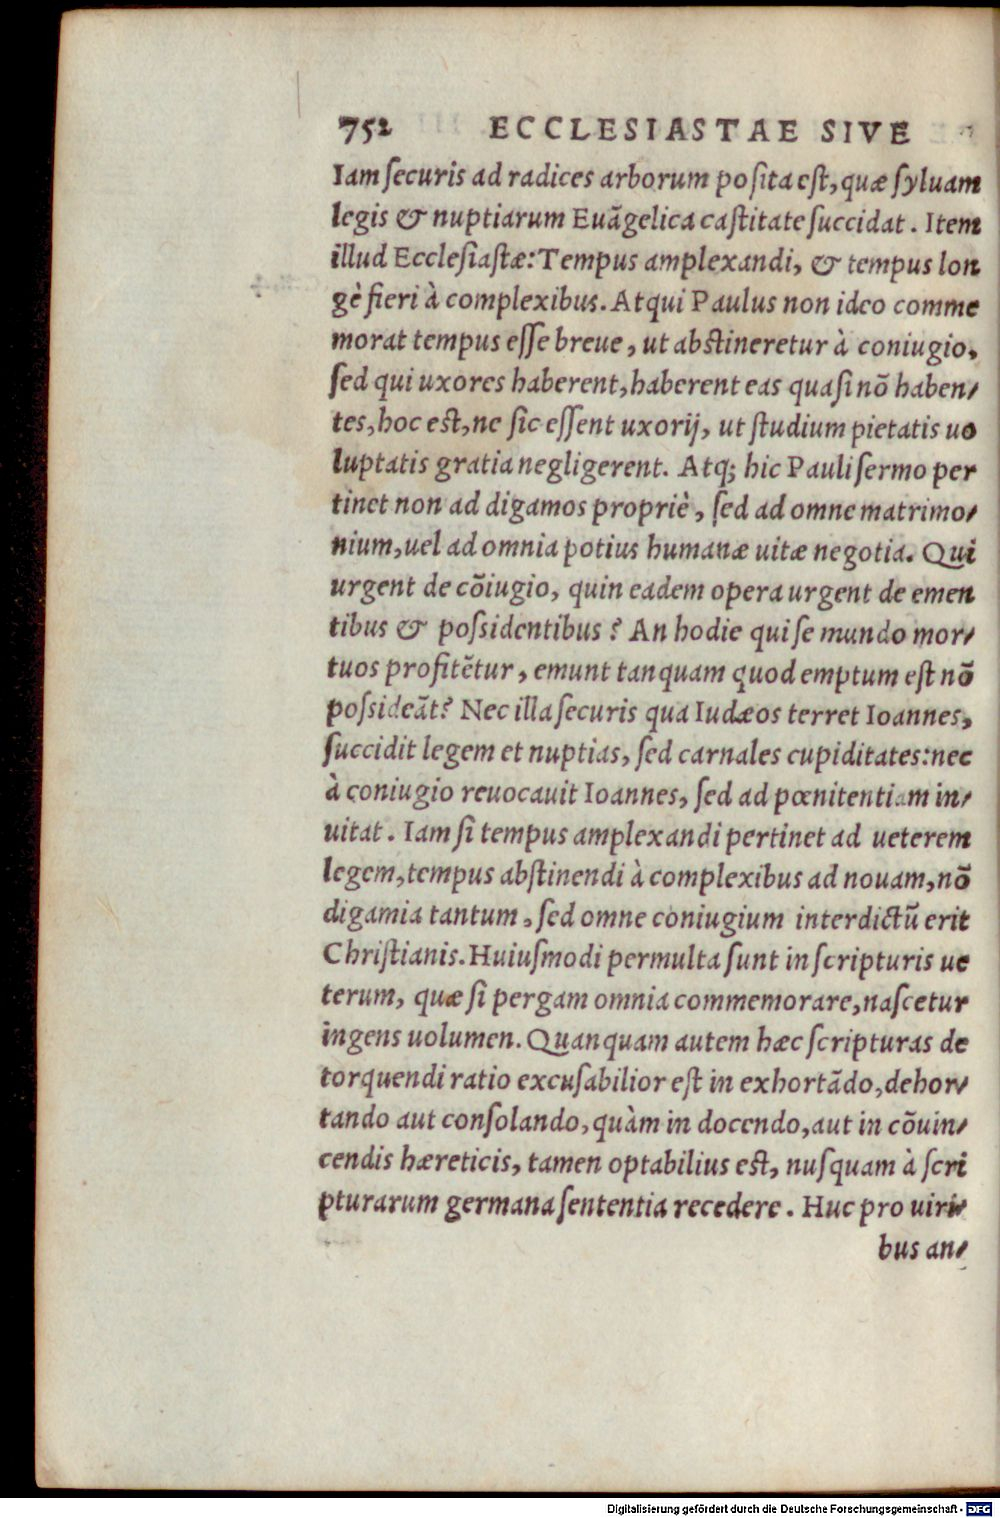 752 ECCLESIASTAE SIVE
Iam securis ad radices arborum posita est, quæ syluam
legis & nuptiarum Euãgelica castitate succidat. Item
illud Ecclesiastæ: Tempus amplexandi, & tempus lon
gè fieri à complexibus. Atqui Paulus non ideo comme
morat tempus esse breue, ut abstineretur à coniugio,
sed qui uxores haberent, haberent eas quasi nõ haben-
tes, hoc est, ne sic essent uxorij, ut studium pietatis uo
luptatis gratia negligerent. Atq; hic Pauli sermo per
tinet non ad digamos propriè, sed ad omne matrimo-
nium, uel ad omnia potius humanæ uitæ negotia. Qui
urgent de cõiugio, quin eadem opera urgent de emen
tibus & possidentibus? An hodie qui se mundo mor-
tuos profitẽtur, emunt tanquam quod emptum est nõ
possideãt? Nec illa securis qua Iudæos terret Ioannes,
succidit legem et nuptias, sed carnales cupiditates: nec
à coniugio reuocauit Ioannes, sed ad pœnitentiam in-
uitat. Iam si tempus amplexandi pertinet ad ueterem
legem, tempus abstinendi à complexibus ad nouam, nõ
digamia tantum, sed omne coniugium interdictũ erit
Christianis. Huiusmodi permulta sunt in scripturis ue
terum, quæ si pergam omnia commemorare, nascetur
ingens uolumen. Quanquam autem hæc scripturas de
torquendi ratio excusabilior est in exhortãdo, dehor-
tando aut consolando, quàm in docendo, aut in cõuin-
cendis hæreticis, tamen optabilius est, nusquam à scri
pturarum germana sententia recedere. Huc pro uiri-
bus an-
Digitalisierung gefördert durch die Deutsche Forschungsgemeinschaft - DFG